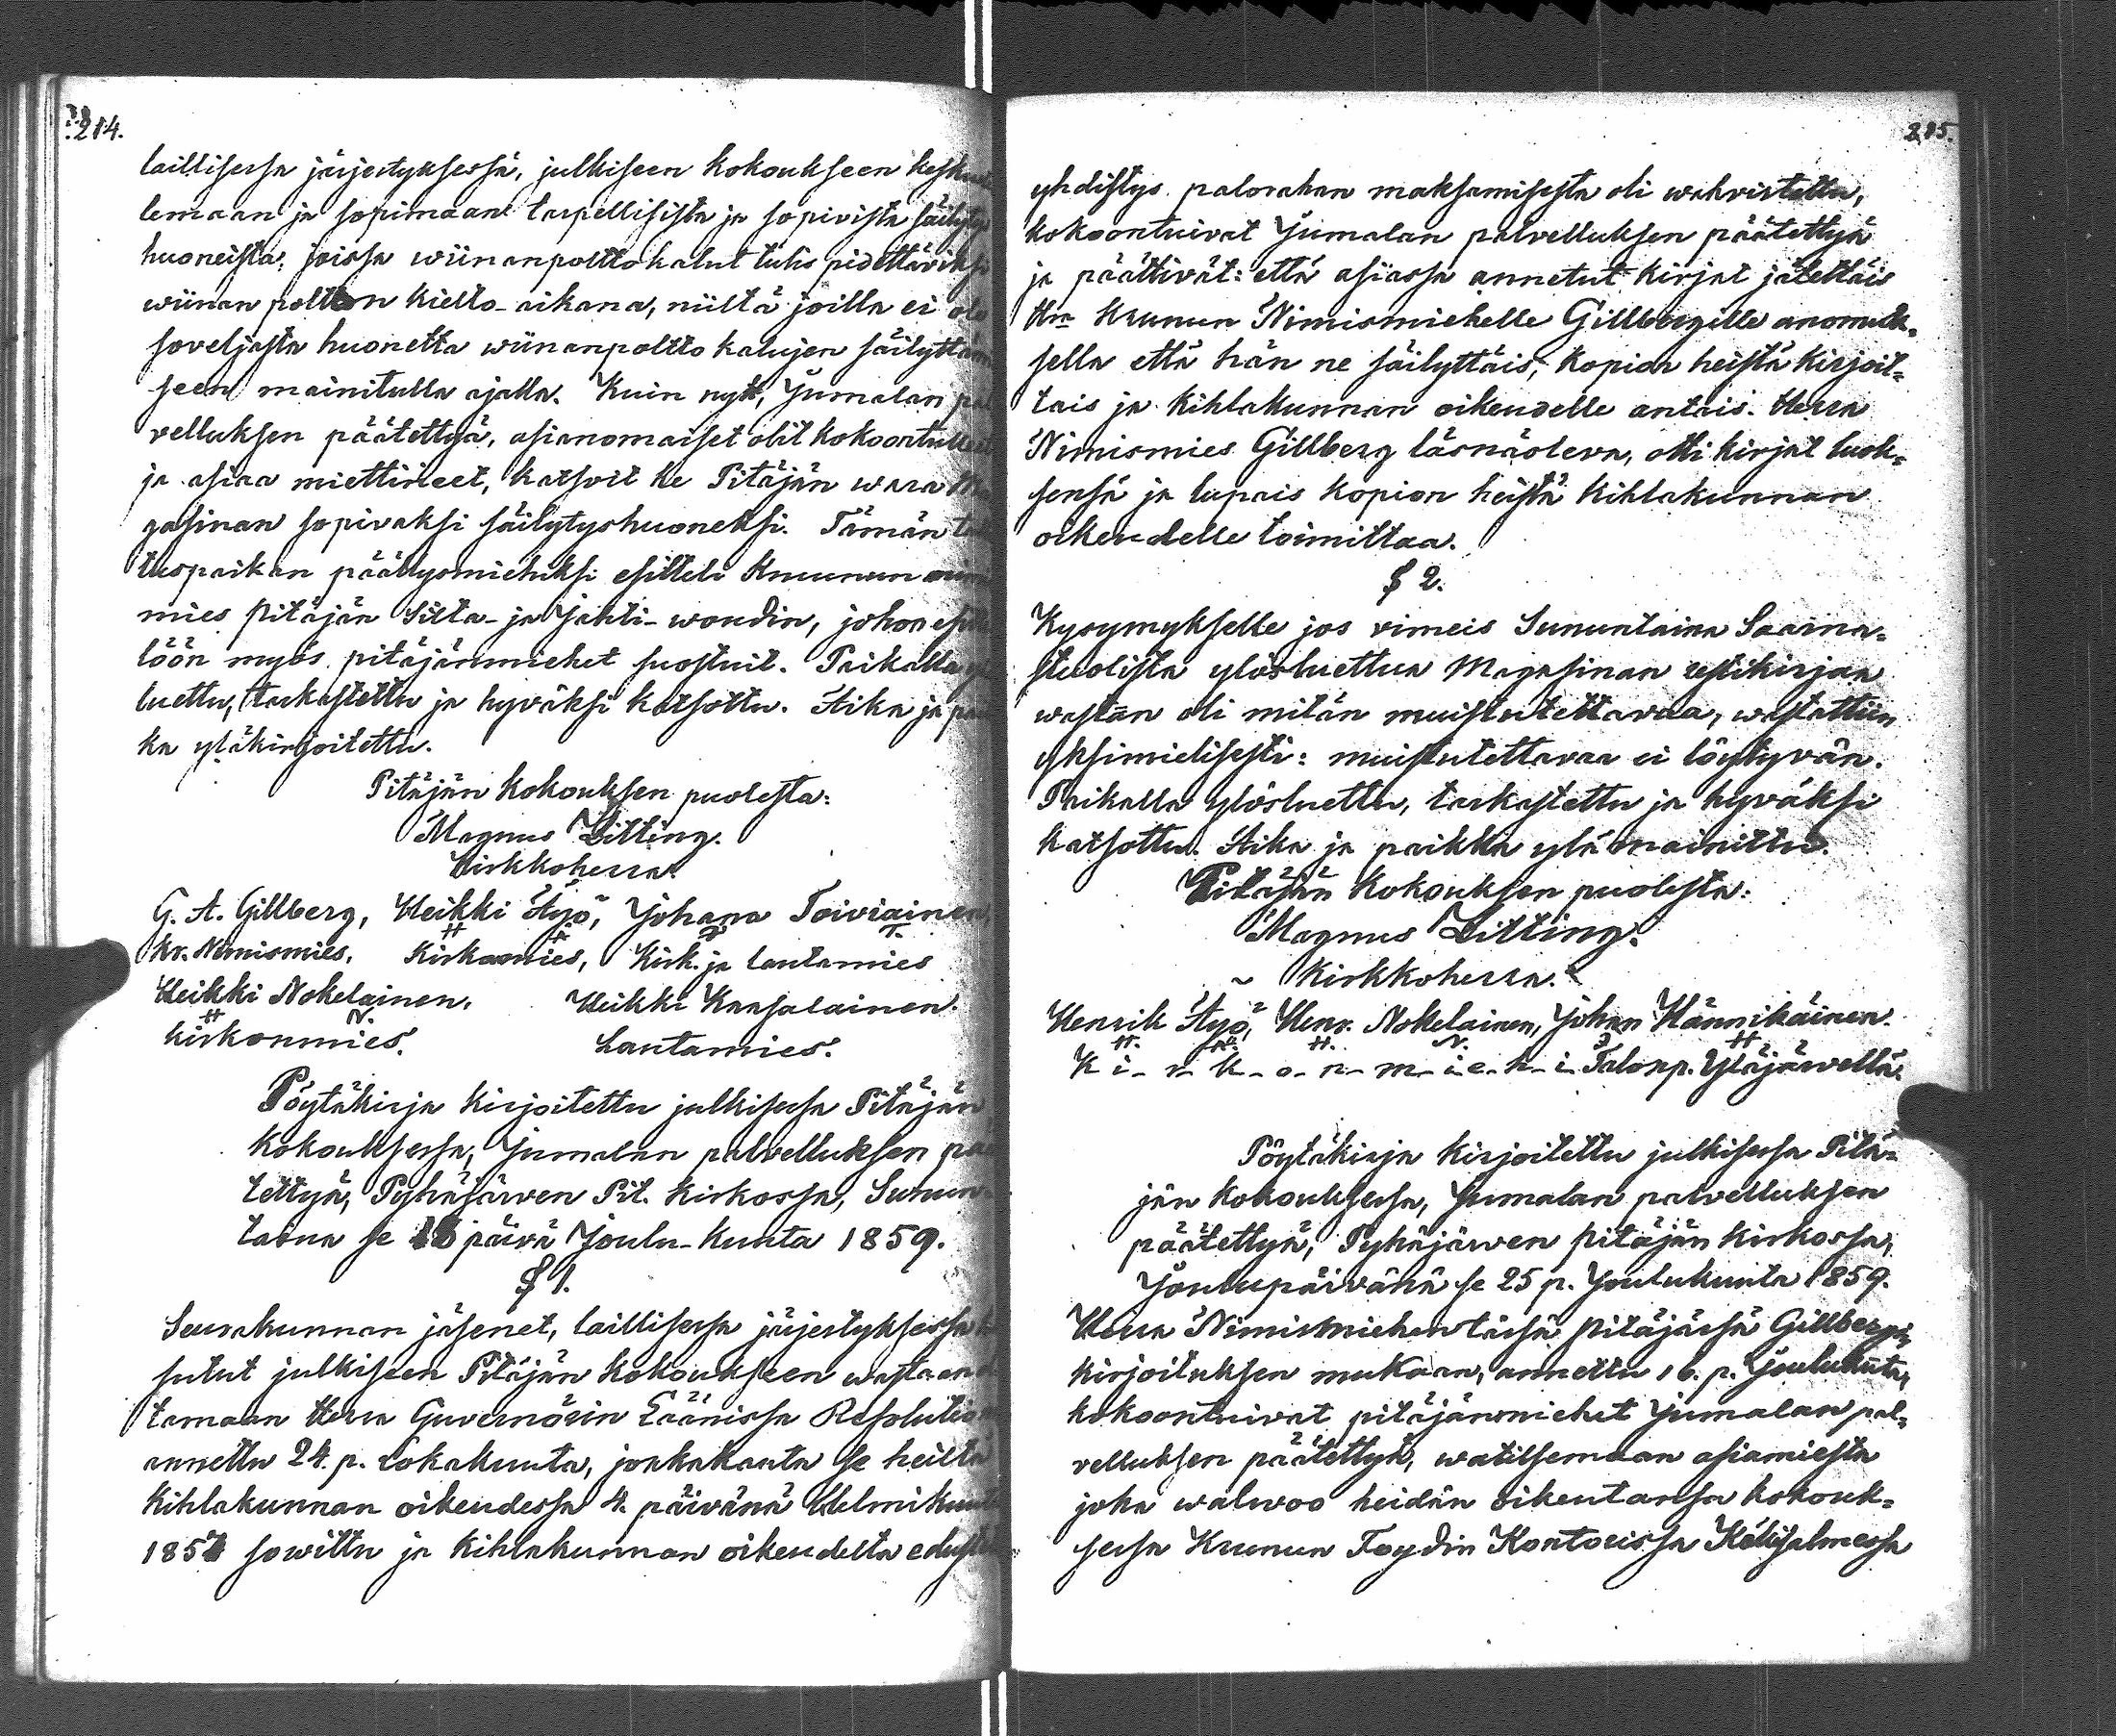 214.
laillisessa järjestyksessä, julkiseen kokoukseen
lemaan ja sopimaan tarpellisista ja sopivista
huoneista, joissa wiinanpolttokalut tulis pidettäviksi
wiinan polton kielto-aikana, niiltä joilla ei ole
soveljasta huonetta wiinanpoltto kalujen
seen mainitulla ajalla. Kuin nyt, Jumalan
velluksen päätettyä, asianomaiset olit kokoontulleet
ja asiaa miettineet, katsoit he Pitäjän wara
gasinan sopivaksi säilytyshuoneksi. Tämän
tuspaikan päällysmieheksi esitteli Kruunun
mies pitäjän Silta- ja Jahti-woudin, johon
löön myös pitäjänmiehet suostuit. Paikalla
luettu, tarkastettu ja hyväksi katsottu. Aika ja
ka yläkirjoitettu.
Pitäjän kokouksen puolesta:
Magnus Litting.
Kirkkoherra.
G. A. Gillberg, Heikki Äyö, Johana Toiviainen,
H Ä T
kr. Nimismies. Kirkonmies, Kirk. ja lautamies
Heikki Nokelainen. Heikki Kansalainen.
H N
kirkonmies. Lautamies.
Pöytäkirja kirjoitettu julkisessa Pitäjän
kokouksessa, Jumalan palvelluksen
tettyä, Pyhäjärwen Pit. kirkossa, Sunun-
taina se päivä Joulu-kuuta 1859.
§ 1.
Seurakunnan jäsenet, laillisessa järjestyksessä
sutut julkiseen Pitäjän kokoukseen
tamaan Herra Guvernörin Läänissa
annettu 24. p. Lokakuuta, jonkakautta se heiltä
Kihlakunnan oikeudessa 4. päivänä
sowittu ja kihlakunnan oikeudelta
215.
yhdistys palorahan maksamisesta oli wahvistettu,
kokoontuivat Jumalan palvelluksen päätettyä
ja päättivät: että asiassa annetut kirjat jätettäis
Hra Krunun Nimismiehelle Gillbergille anomuk=
sella että hän ne säilyttäis, kopion heistä kirjoit=
tais ja kihlakunnan oikeudelle antais. Herra
Nimismies Gillberg läsnäoleva, otti kirjat luok=
sensä ja lupais kopion heistä kihlakunnan
oikeudelle toimittaa.
§ 2.
Kysymykselle jos vimeis Sununtaina Saarna=
stuolista ylösluettua Magasinan restikirjaa
wastan oli mitän muistutettavaa, wastattiin
yksimielisesti: muistutettavaa ei löytyvän.
Paikalla ylösluettu, tarkastettu ja hyväksi
katsottu. Aika ja paikka ylämainittu.
Pitäjän kokouksen puolesta:
Magnus Litting.
Kirkkoherra.
Henrik Äyö, Henr. Nokelainen, Johan Hännikäinen.
H. Ä. H. N. J H
K i- r- k- o- n- m- i- e- h- i- Talonp. Yläjärvellä.
Pöytäkirja kirjoitettu julkisessa Pitä=
jän kokouksessa, Jumalan palvelluksen
päätettyä, Pyhäjärwen pitäjän kirkossa,
Joulupäivänä se 25 p. Joulukuuta 1859.
Herra Nimismiehen tässä pitäjässä Gillbergin
kirjoituksen mukaan, annettu 16. p. Joulukuuta,
kokoontuivat pitäjänmiehet Jumalan pal=
velluksen päätettyä, walitsemaan asiamiestä
joka walwoo heidän oikeutansa kokouk=
sessa Krunun Foudin Kontorissa Käkisalmessa